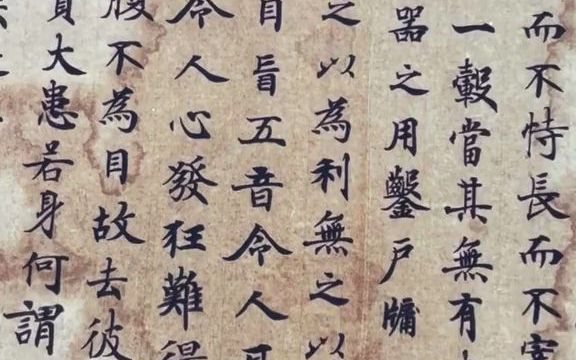 而不恃長而不宰
一轂當其無有
器之用鑿戶牖
之以為利無之以
目盲五音令人耳
令人心發狂難得
腹不為目故去彼
貴大患若身何謂